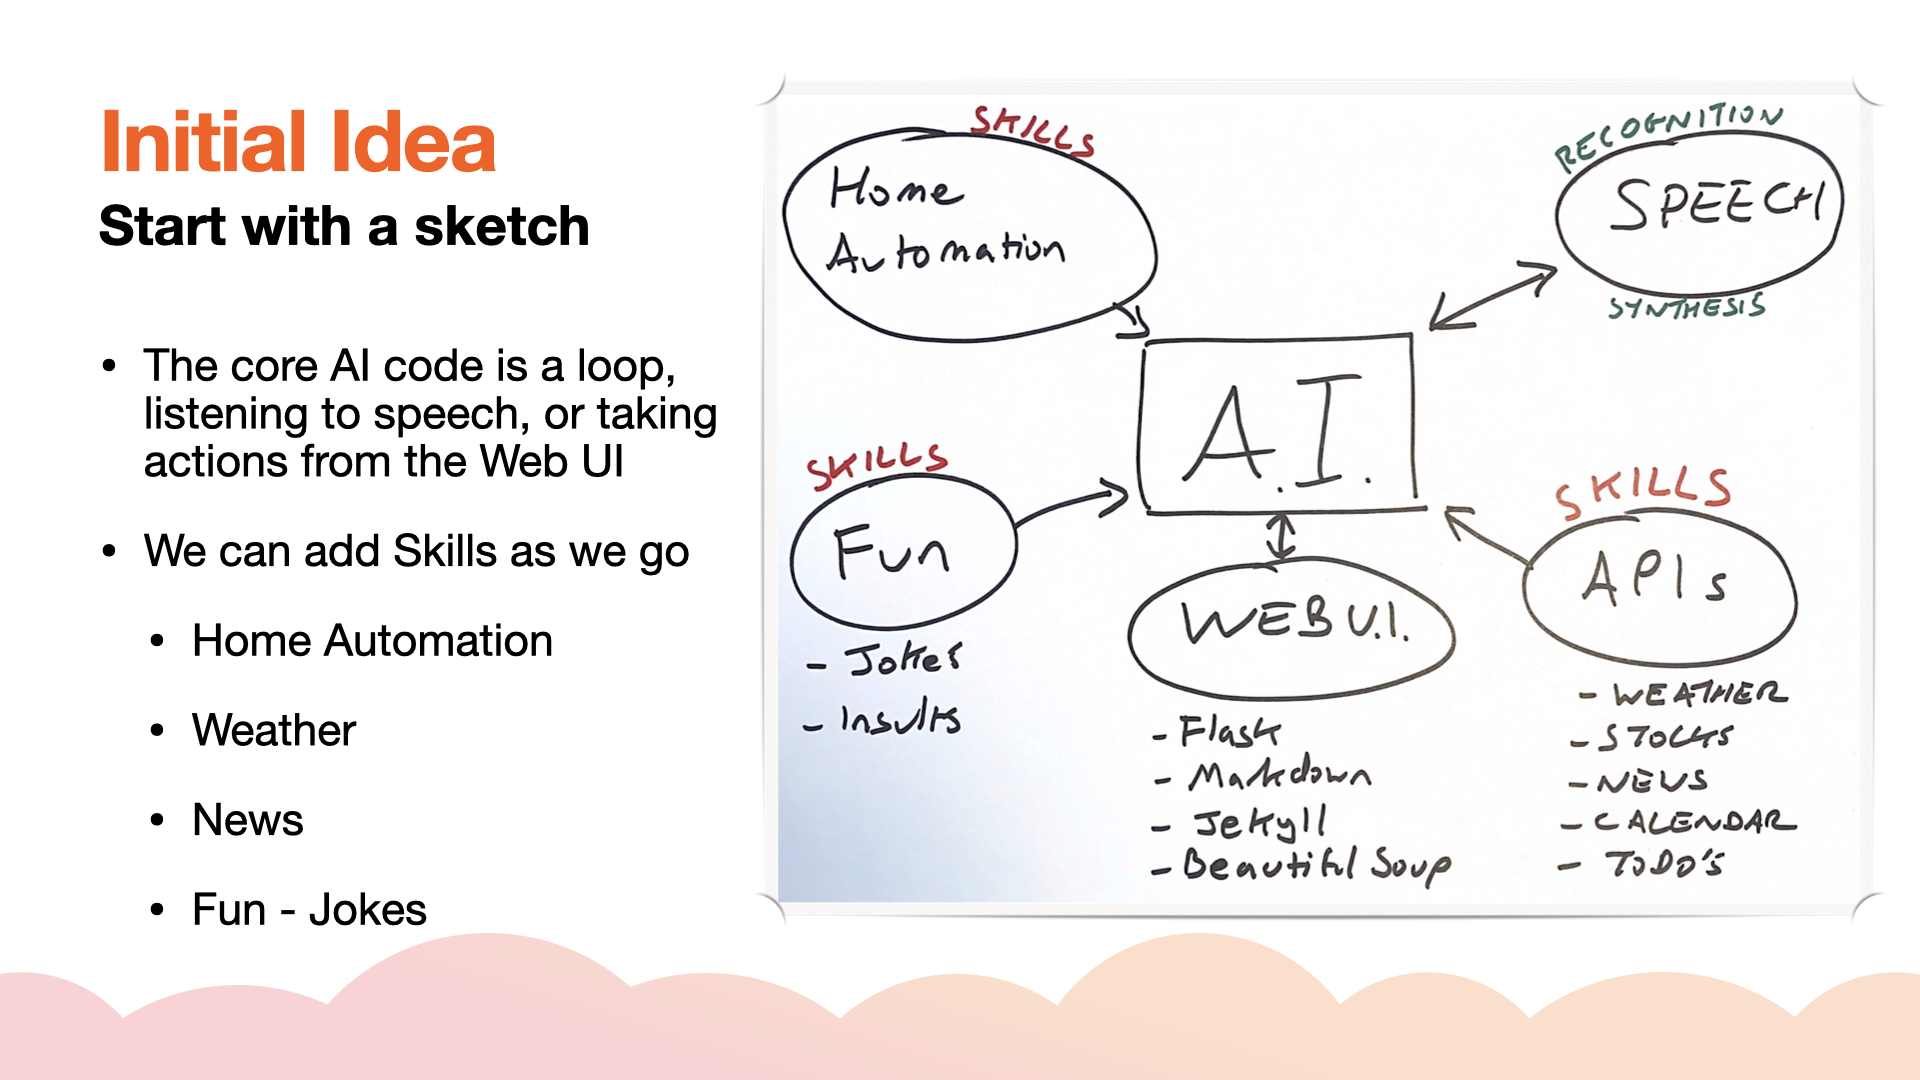 Initial Idea
Start with a sketch
• The core AI code is a loop,
listening to speech, or taking
actions from the Web UI
• We can add Skills as we go
• Home Automation
• Weather
• News
• Fun - Jokes
SKILLS
Home
Automation
RECOGNITION
SPEECH
SYNTHESIS
A.I.
SKILLS
Fun
- Jokes
- Insults
WEB U.I.
- Flask
- Markdown
- Jekyll
- Beautiful Soup
SKILLS
APIs
- WEATHER
- STOCKS
- NEWS
- CALENDAR
- TODO'S